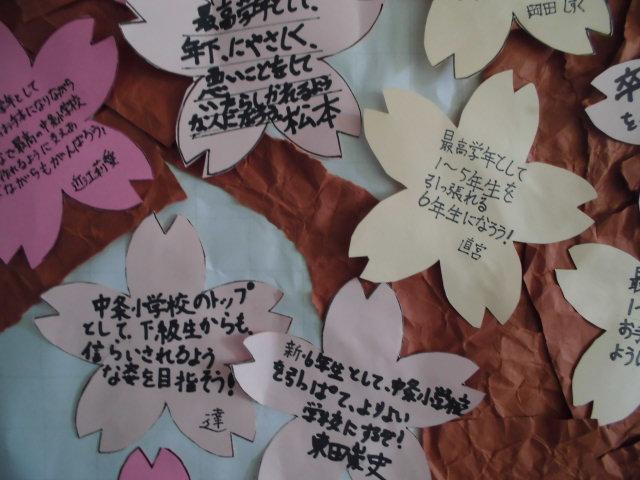 最高学年として、
年下、にやさしく、
悪いことをして
松本
岡田 しずく
最高学年として
1〜5年生を
引っ張れる
6年生になろう!
直宮
中条小学校のトップ
として、下級生からも、
信らいされるよう
な姿を目指そう!
達
新・6年生として、中条小学校
を引っぱて、よりよい
学校にするぞ!
東田崇史
年として
お手本になりながら
で最高の中条小学校
作れるようにささえあ
ながらもがんばろう!
近江莉愛
卒
を
最
1〜
お手
ように